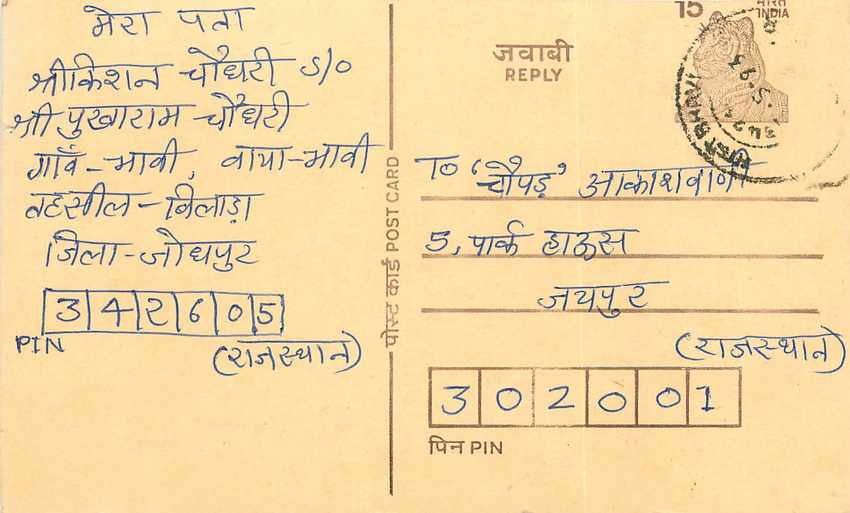 मेरा पता
श्रीकिशन चौधरी S/o
श्री पुखाराम चौधरी
गाँव - भावी, वाया - भावी
तहसील - बिलाड़ा
जिला - जोधपुर
342605
PIN
(राजस्थान)
पोस्ट कार्ड POST CARD
15
भारत
INDIA
जवाबी
REPLY
To 'चौपड़' आकाशवाणी
5, पार्क हाऊस
जयपुर
(राजस्थान)
302001
पिन PIN